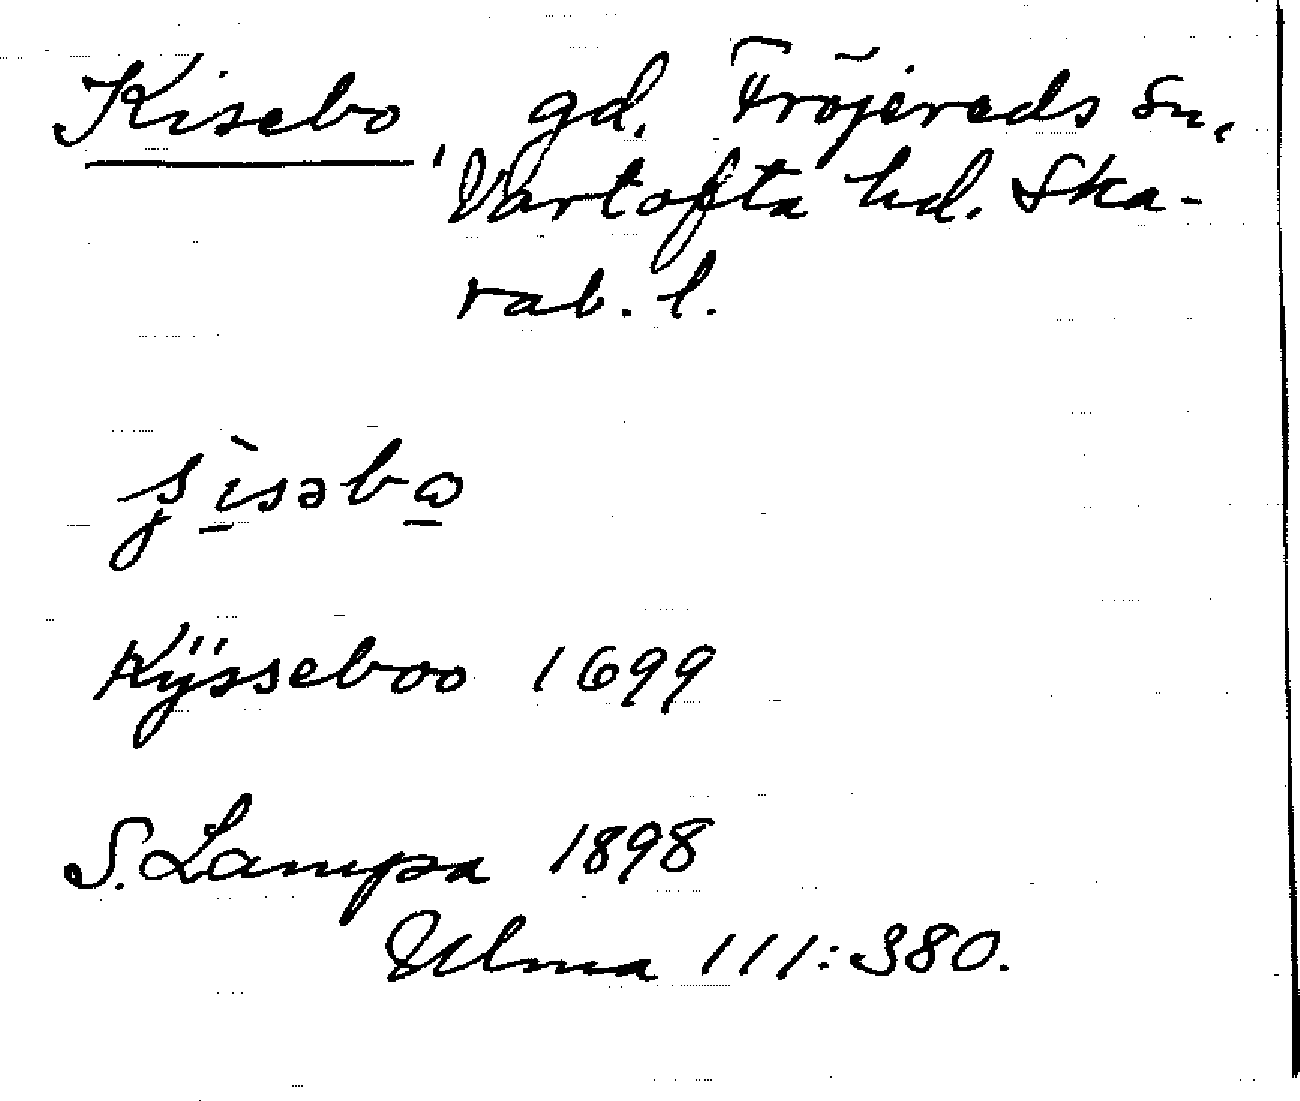 Kisebo, gd. Fröjereds sn,
Vartofta hd. Ska-
rab. l.
ʂìsəbo
Kÿsseboo 1699
S. Lampa 1898
Ulma 111:380.